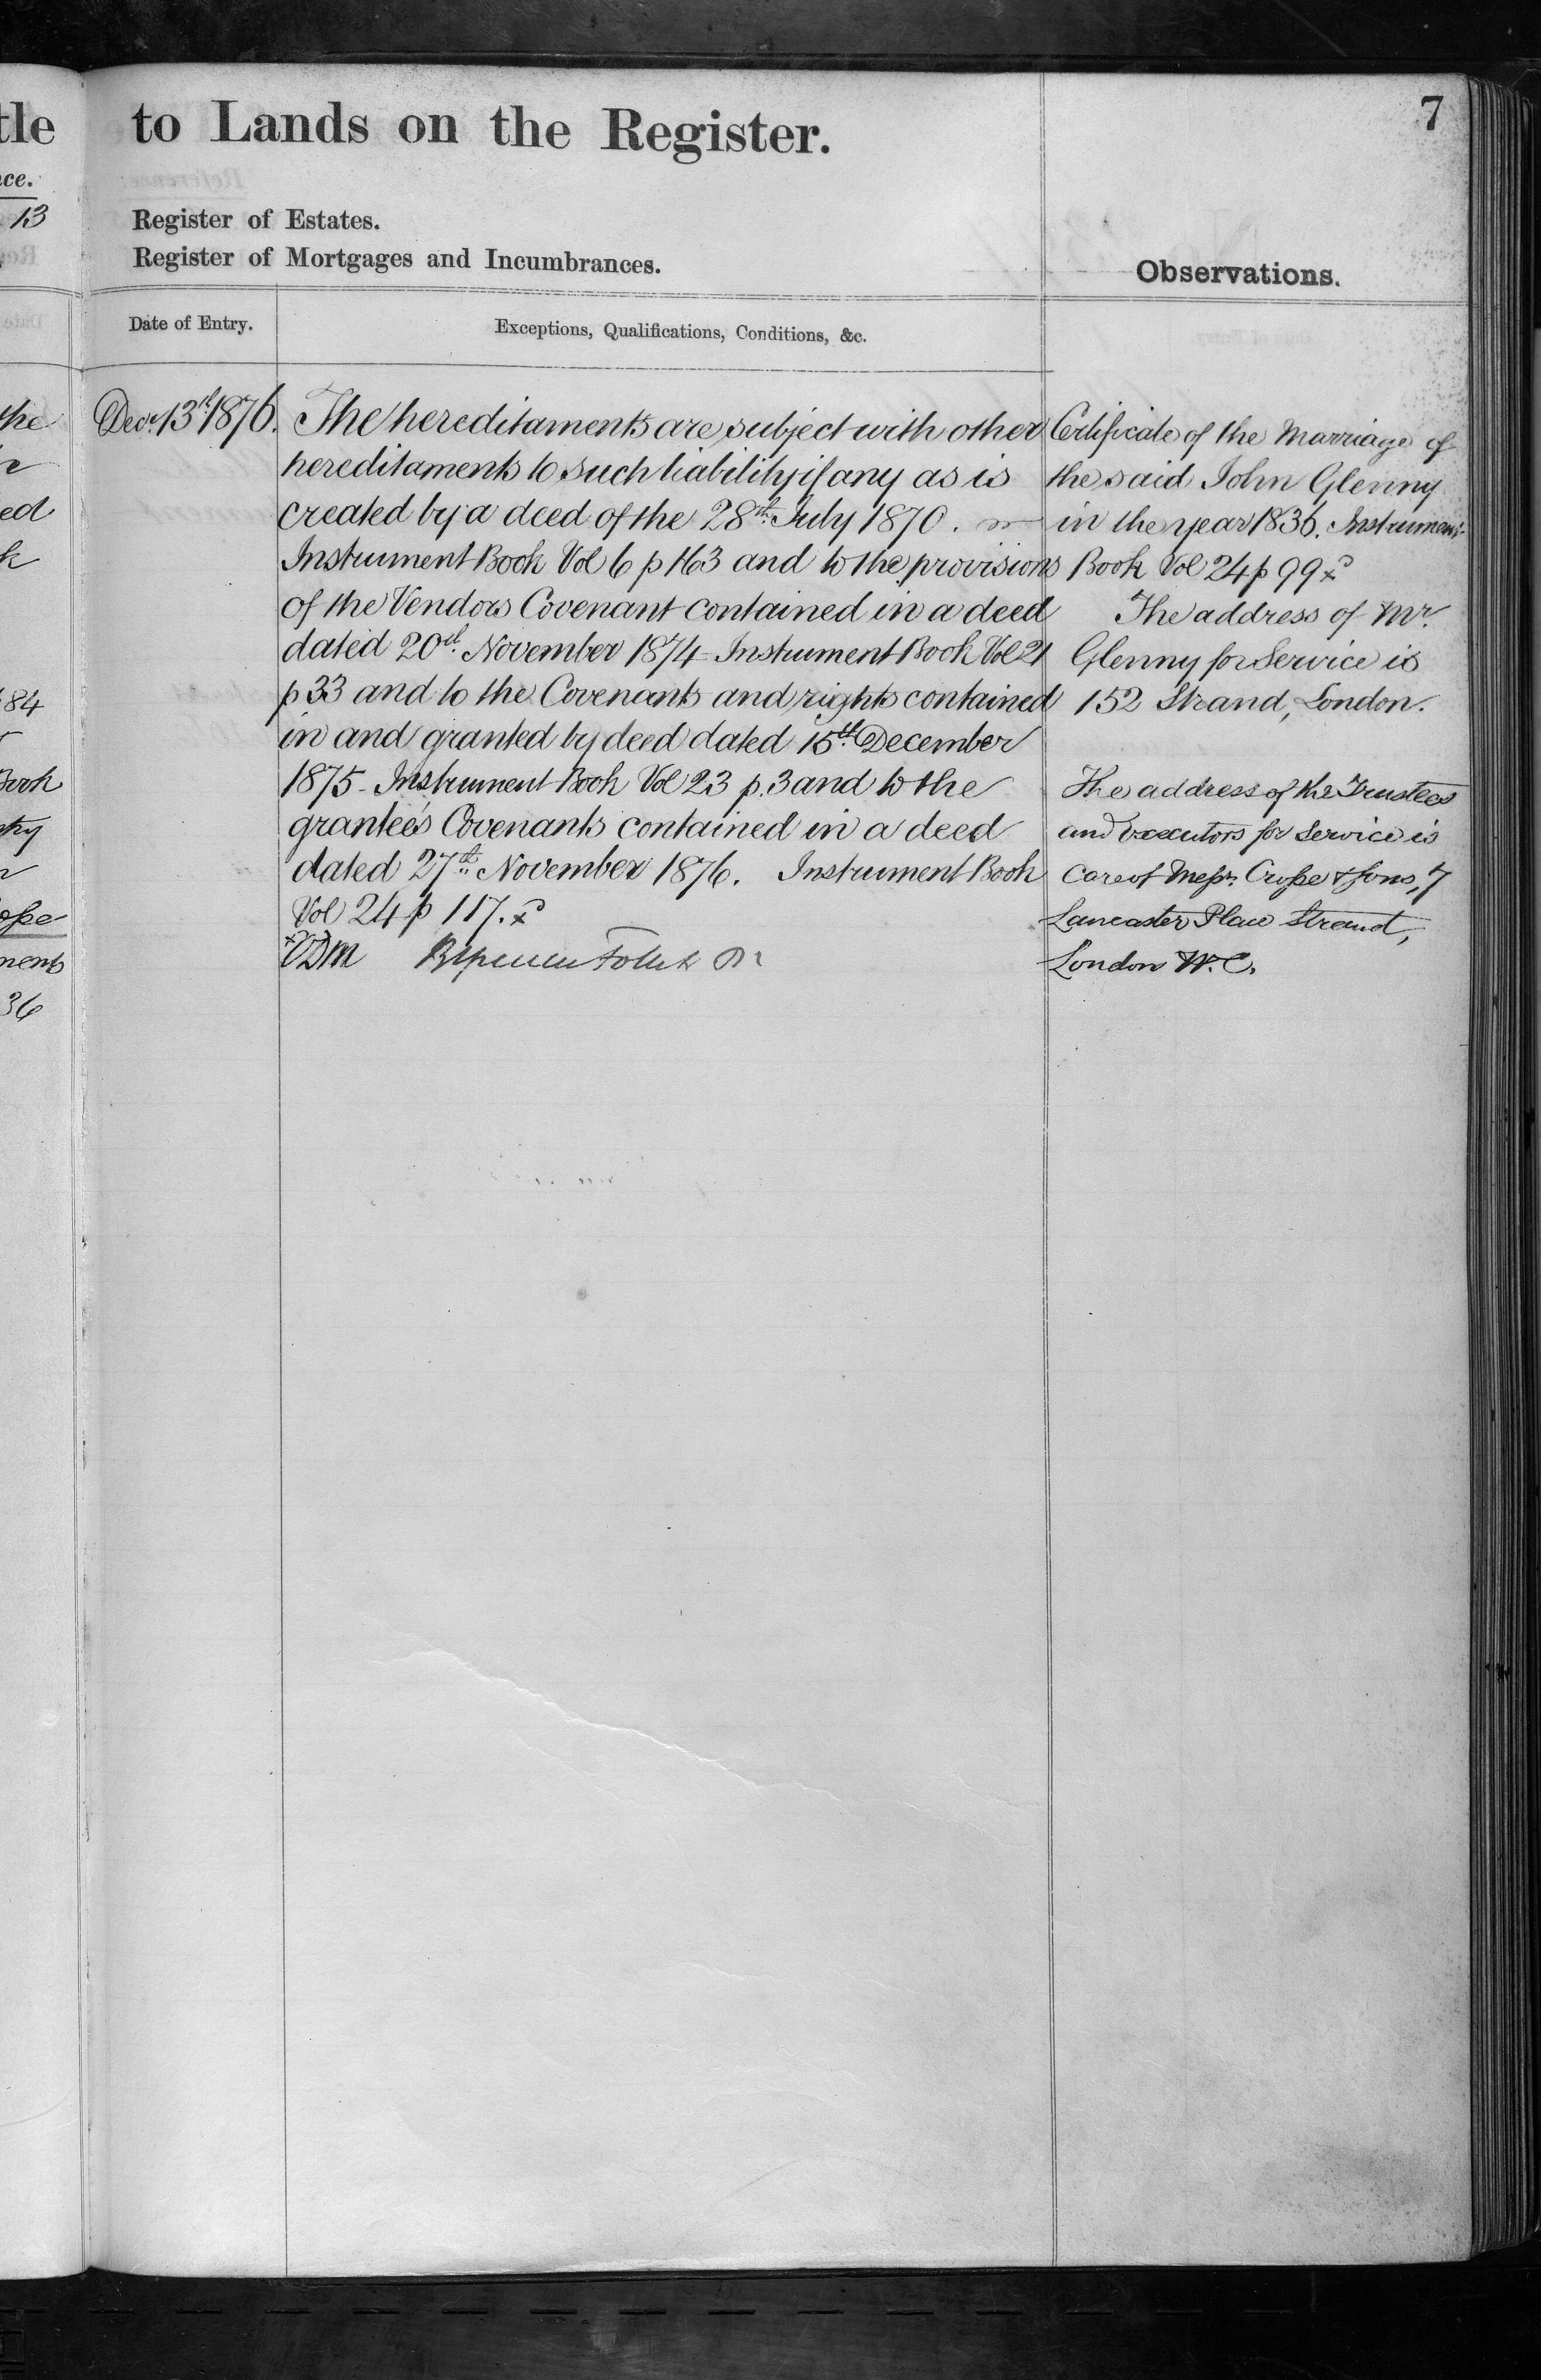 7
to Lands on the Register.
Register of Estates.
Register of Mortgages and Incumbrances.
Observations.
Date of Entry.
Exceptions, Qualifications, Conditions, &c.
Decr. 13th 1876.
The hereditaments are subject with other
hereditaments to such liability if any as is
created by a deed of the 28th July 1870.
Instrument Book Vol 6 p 163 and to the provisions
of the Vendors Covenant contained in a deed
dated 20th November 1874 - Instrument Book Vol 21
p 33 and to the Covenants and rights contained
in and granted by deed dated 15th December
1875 - Instrument Book Vol 23 p. 3 and to the
grantee's Covenants contained in a deed
dated 27th November 1876. Instrument Book
Vol 24 p 117.
Certificate of the Marriage of
the said John Glenny
in the year 1836. Instrument
Book Vol 24 p 99
The address of Mr.
Glenny for Service is
152 Strand, London.
The address of the Trustees
and executors for Service is
Care of Messrs. Crosse & Sons, 7
Lancaster Place Strand,
London W.C.
tle
ce.
13
the
ed
k
84
Book
nents
36